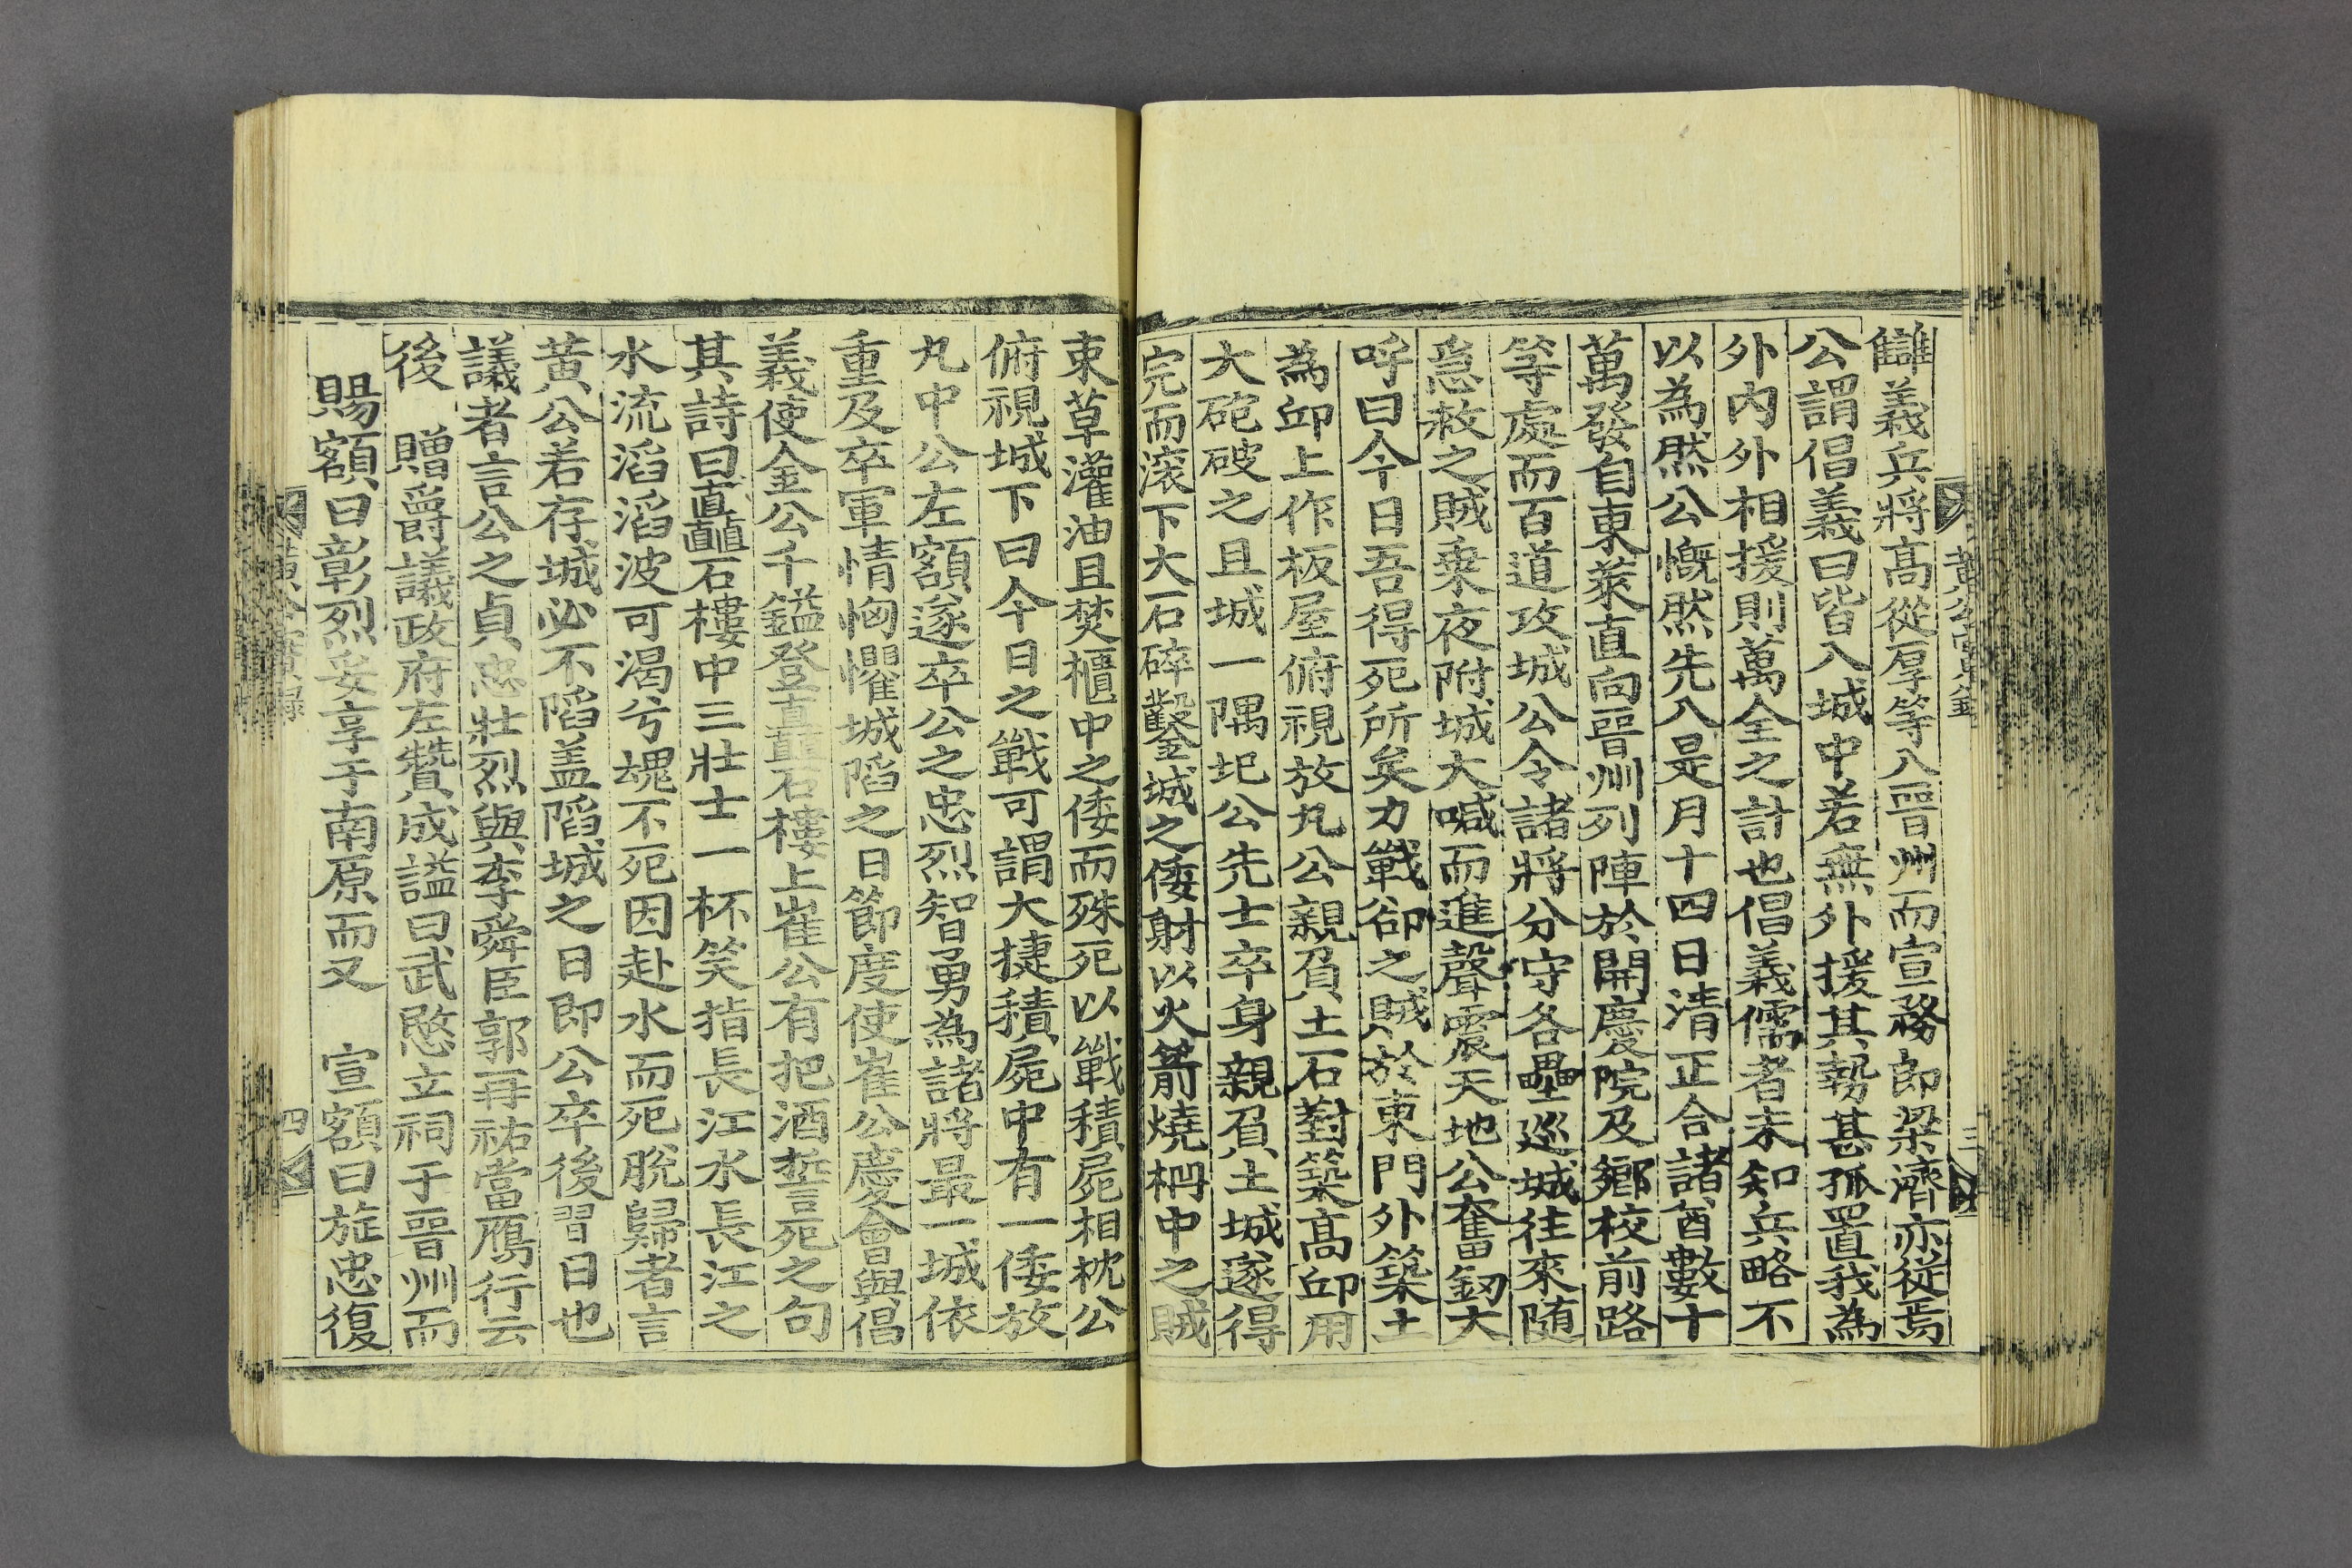 讎義兵將高從厚等入晉州而宣務郎梁濟亦從焉
公謂倡義曰皆入城中若無外援其勢甚孤置我為
外內外相援則萬全之計也倡義儒者未知兵略不
以為然公慨然先入是月十四日清正合諸酋數十
萬發自東萊直向晉州列陣於開慶院及鄉校前路
等處而百道攻城公令諸將分守各壘巡城往來隨
急救之賊乘夜附城大喊而進聲震天地公奮釼大
呼曰今日吾得死所矣力戰卻之賊於東門外築土
為邱上作板屋俯視放丸公親負土石對築高邱用
大砲破之且城一隅圯公先士卒身親負土城遂得
完而滾下大石碎鑿城之倭射以火箭燒柵中之賊
黃公實錄
三
束草灌油且焚櫃中之倭而殊死以戰積屍相枕公
俯視城下曰今日之戰可謂大捷積屍中有一倭放
丸中公左額遂卒公之忠烈智勇為諸將最一城依
重及卒軍情恟懼城陷之日節度使崔公慶會與倡
義使金公千鎰登矗石樓上崔公有把酒誓死之句
其詩曰矗石樓中三壯士一杯笑指長江水長江之
水流滔滔波可渴兮魂不死因赴水而死脫歸者言
黃公若存城必不陷盖陷城之日即公卒後翌日也
議者言公之貞忠壯烈與李舜臣郭再祐當鴈行云
後　贈爵議政府左贊成謚曰武愍立祠于晉州而
賜額曰彰烈妥享于南原而又　宣額曰旌忠復
黃公實錄
四